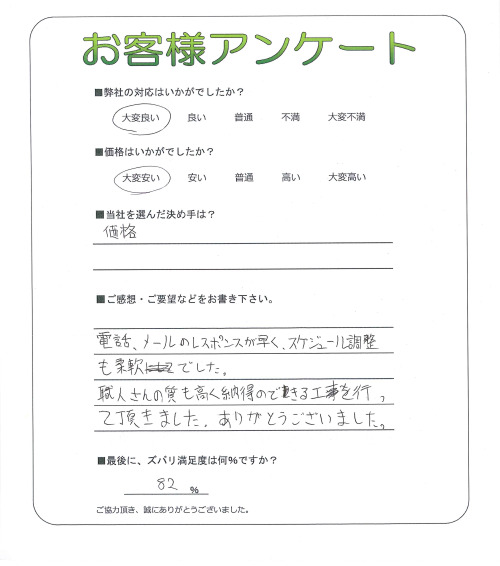 お客様アンケート
■弊社の対応はいかがでしたか？
大変良い 良い 普通 不満 大変不満
■価格はいかがでしたか？
大変安い 安い 普通 高い 大変高い
■当社を選んだ決め手は？
価格
■ご感想・ご要望などをお書き下さい。
電話、メールのレスポンスが早く、スケジュール調整
も柔軟でした。
職人さんの質も高く納得のできる工事を行っ
て頂きました。ありがとうございました。
■最後に、ズバリ満足度は何％ですか？
82 %
ご協力頂き、誠にありがとうございました。